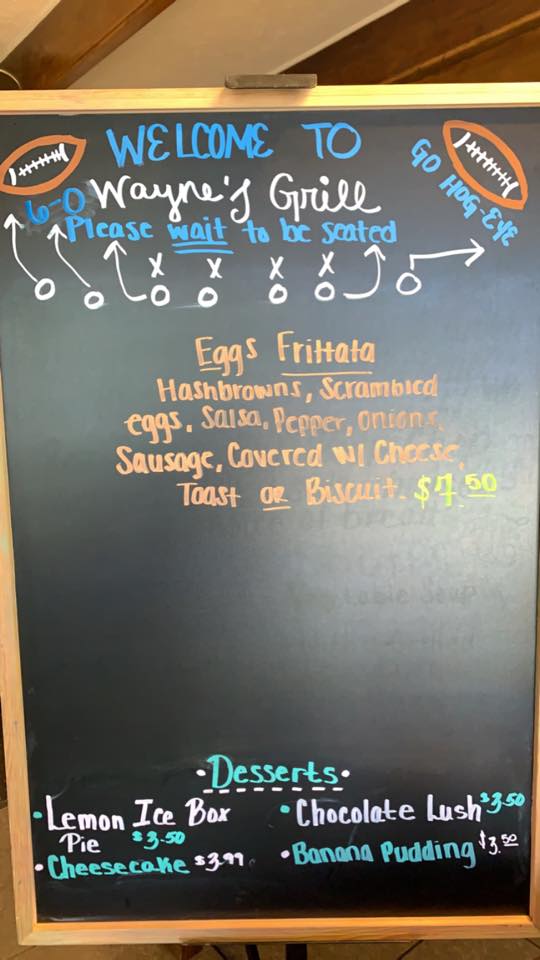 WELCOME TO
GO HOG-EYE
6-0 Wayne's Grill
Please wait to be seated
X X X X
O O O O O O O
Eggs Frittata
Hashbrowns, Scrambled
eggs, Salsa, Pepper, Onions,
Sausage, Covered w/ Cheese,
Toast or Biscuit. $7.50
•Desserts•
•Lemon Ice Box
Pie $3.50
•Cheesecake $3.99
•Chocolate Lush $3.50
•Banana Pudding $3.50